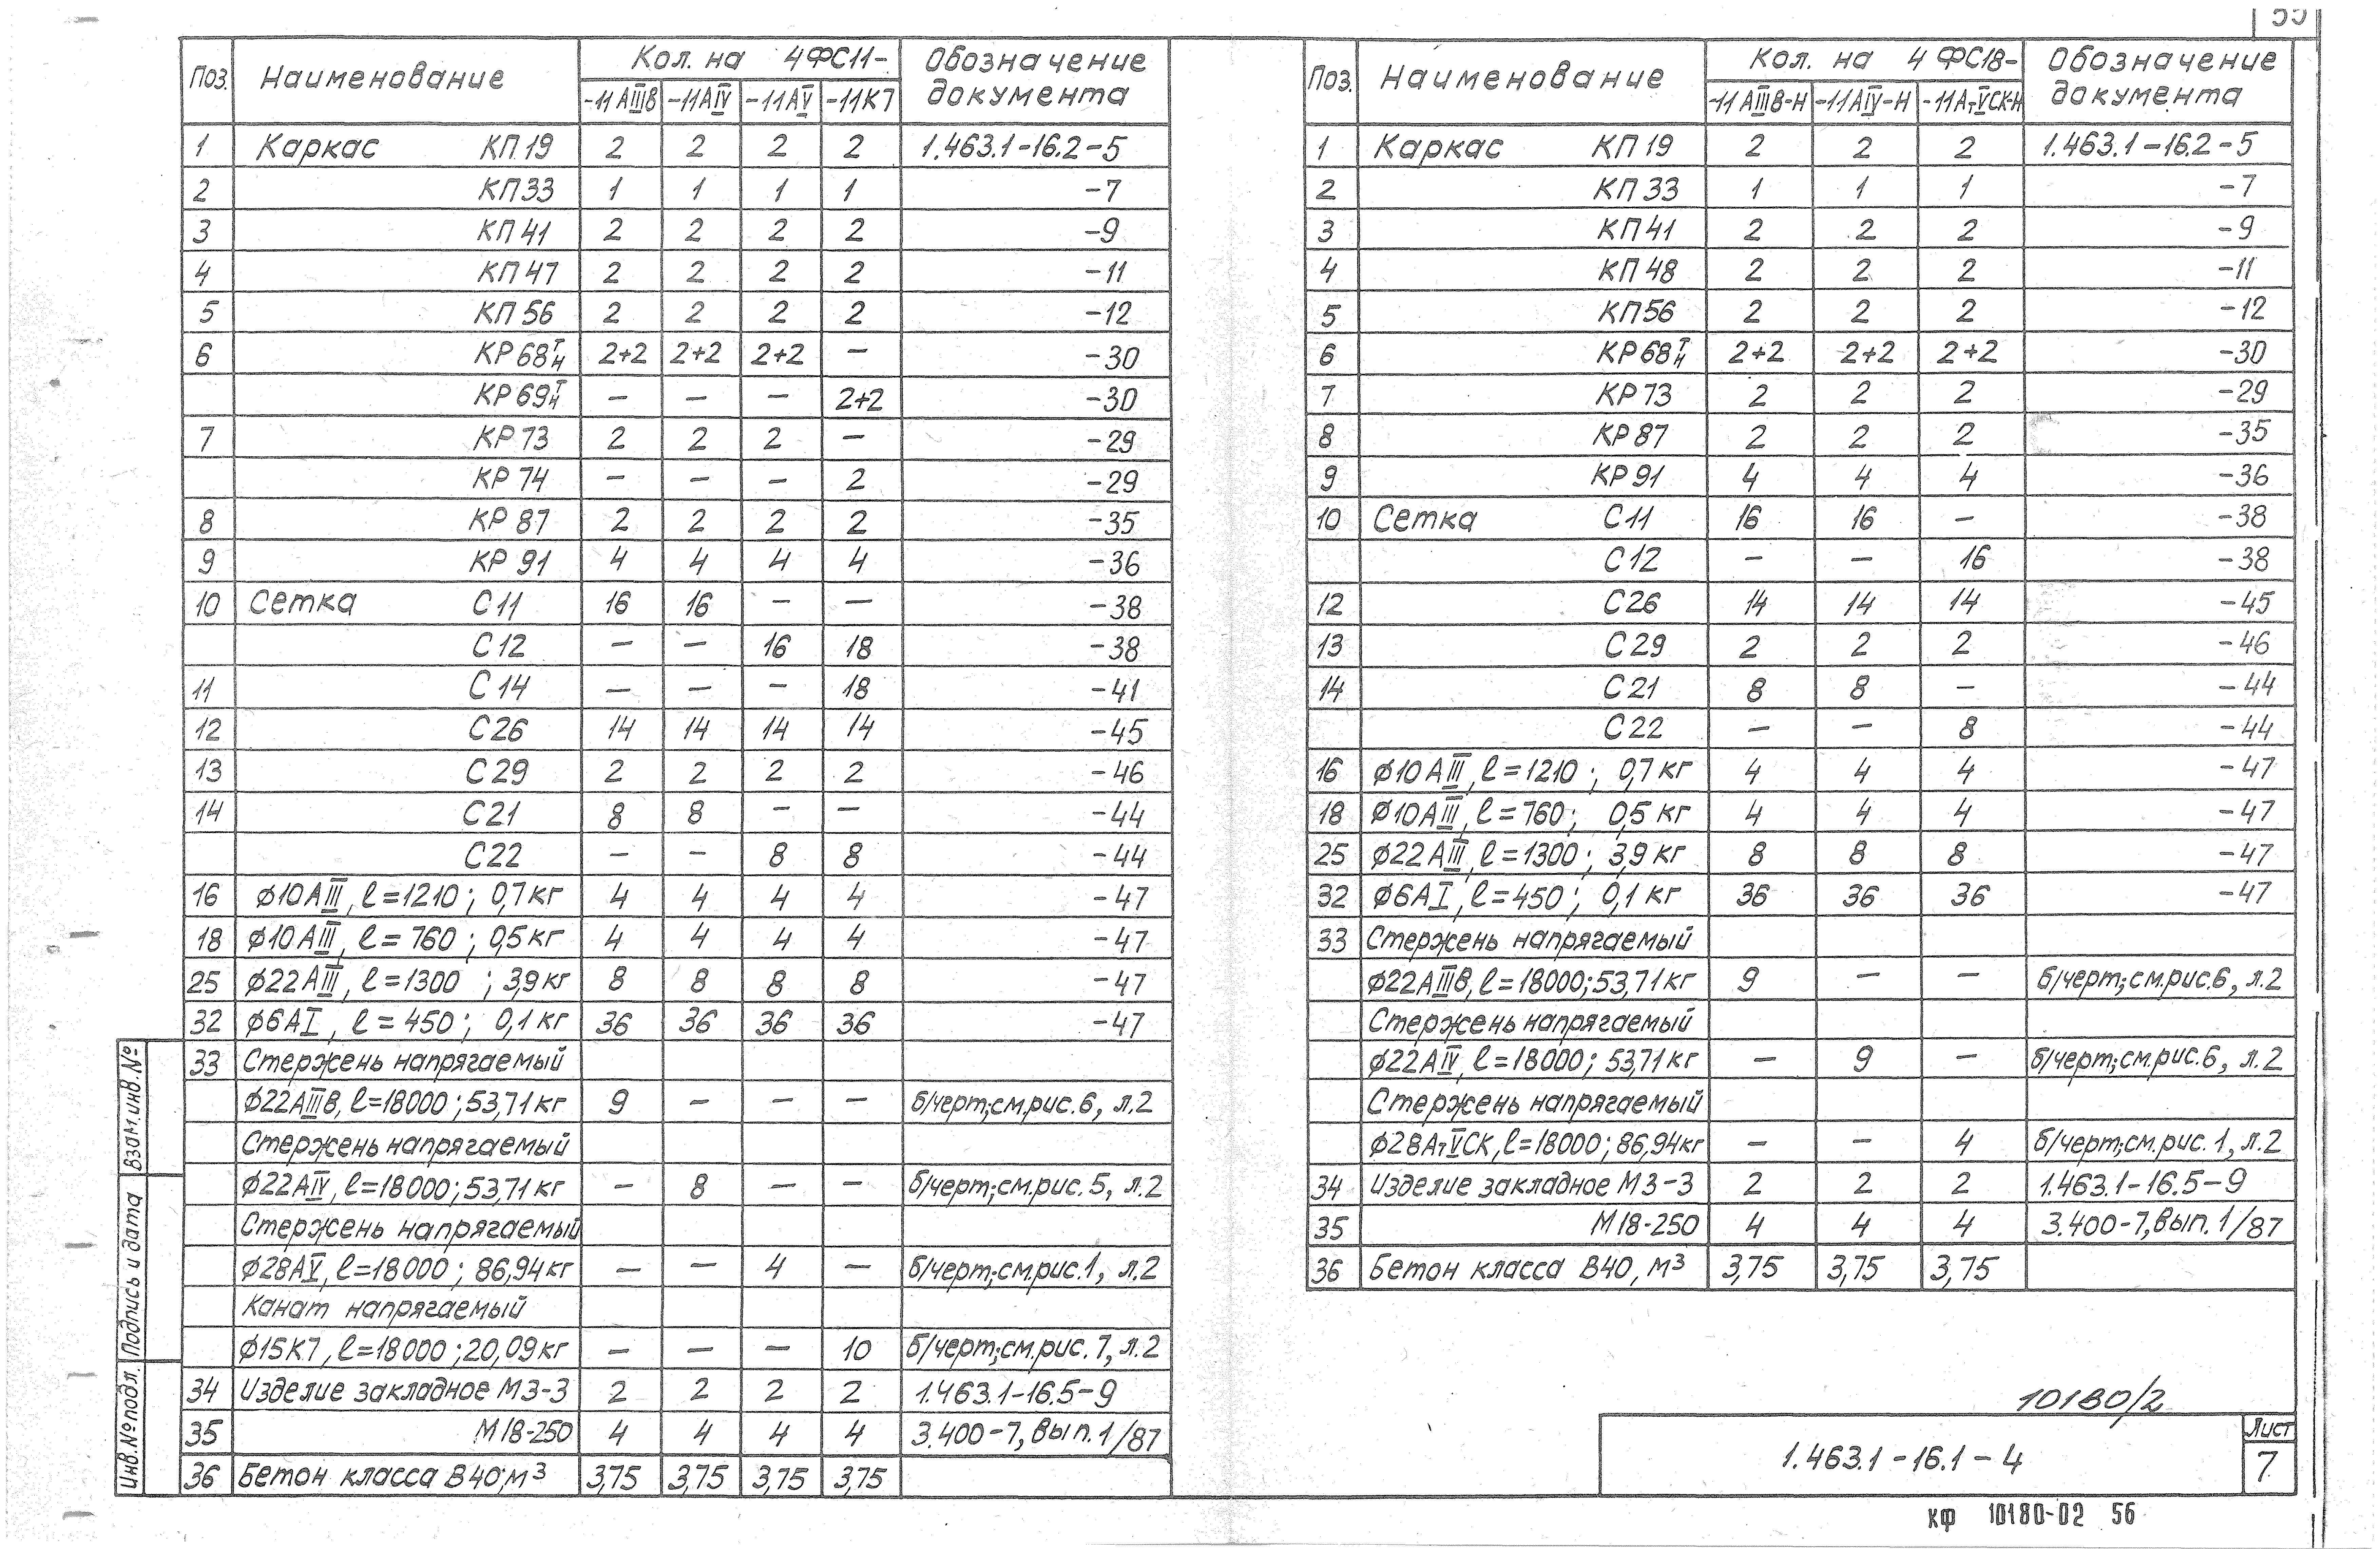 Поз. Наименование Кол. на 4ФС11- Обозначение документа
-11АIIIв -11АIV -11АV -11К7
1 Каркас КП19 2 2 2 2 1.463.1-16.2-5
2 КП33 1 1 1 1 -7
3 КП41 2 2 2 2 -9
4 КП47 2 2 2 2 -11
5 КП56 2 2 2 2 -12
6 КР68т/н 2+2 2+2 2+2 — -30
КР69т/н — — — 2+2 -30
7 КР73 2 2 2 — -29
КР74 — — — 2 -29
8 КР87 2 2 2 2 -35
9 КР91 4 4 4 4 -36
10 Сетка С11 16 16 — — -38
С12 — — 16 18 -38
11 С14 — — — 18 -41
12 С26 14 14 14 14 -45
13 С29 2 2 2 2 -46
14 С21 8 8 — — -44
С22 — — 8 8 -44
16 ϕ10АIII, ℓ=1210; 0,7кг 4 4 4 4 -47
18 ϕ10АIII, ℓ=760; 0,5кг 4 4 4 4 -47
25 ϕ22АIII, ℓ=1300; 3,9кг 8 8 8 8 -47
32 ϕ6АI, ℓ=450; 0,1кг 36 36 36 36 -47
33 Стержень напрягаемый
ϕ22АIIIв, ℓ=18000; 53,71кг 9 — — — б/черт; см.рис.6, л.2
Стержень напрягаемый
ϕ22АIV, ℓ=18000; 53,71кг — 8 — — б/черт; см.рис.5, л.2
Стержень напрягаемый
ϕ28АV, ℓ=18000; 86,94кг — — 4 — б/черт; см.рис.1, л.2
Канат напрягаемый
ϕ15К7, ℓ=18000; 20,09кг — — — 10 б/черт; см.рис.7, л.2
34 Изделие закладное М3-3 2 2 2 2 1.463.1-16.5-9
35 М18-250 4 4 4 4 3.400-7, вып.1/87
36 Бетон класса В40, м³ 3,75 3,75 3,75 3,75
Взам.инв.№
Подпись и дата
Инв.№ подл.
Поз. Наименование Кол. на 4ФС18- Обозначение документа
-11АIIIв-Н -11АIV-Н -11АтVСК-Н
1 Каркас КП19 2 2 2 1.463.1-16.2-5
2 КП33 1 1 1 -7
3 КП41 2 2 2 -9
4 КП48 2 2 2 -11
5 КП56 2 2 2 -12
6 КР68т/н 2+2 2+2 2+2 -30
7 КР73 2 2 2 -29
8 КР87 2 2 2 -35
9 КР91 4 4 4 -36
10 Сетка С11 16 16 — -38
С12 — — 16 -38
12 С26 14 14 14 -45
13 С29 2 2 2 -46
14 С21 8 8 — -44
С22 — — 8 -44
16 ϕ10АIII, ℓ=1210; 0,7кг 4 4 4 -47
18 ϕ10АIII, ℓ=760; 0,5кг 4 4 4 -47
25 ϕ22АIII, ℓ=1300; 3,9кг 8 8 8 -47
32 ϕ6АI, ℓ=450; 0,1кг 36 36 36 -47
33 Стержень напрягаемый
ϕ22АIIIв, ℓ=18000; 53,71кг 9 — — б/черт; см.рис.6, л.2
Стержень напрягаемый
ϕ22АIV, ℓ=18000; 53,71кг — 9 — б/черт; см.рис.6, л.2
Стержень напрягаемый
ϕ28АтVСК, ℓ=18000; 86,94кг — — 4 б/черт; см.рис.1, л.2
34 Изделие закладное М3-3 2 2 2 1.463.1-16.5-9
35 М18-250 4 4 4 3.400-7, вып.1/87
36 Бетон класса В40, м³ 3,75 3,75 3,75
10180/2
1.463.1-16.1-4
Лист
7
КФ 10180-02 56